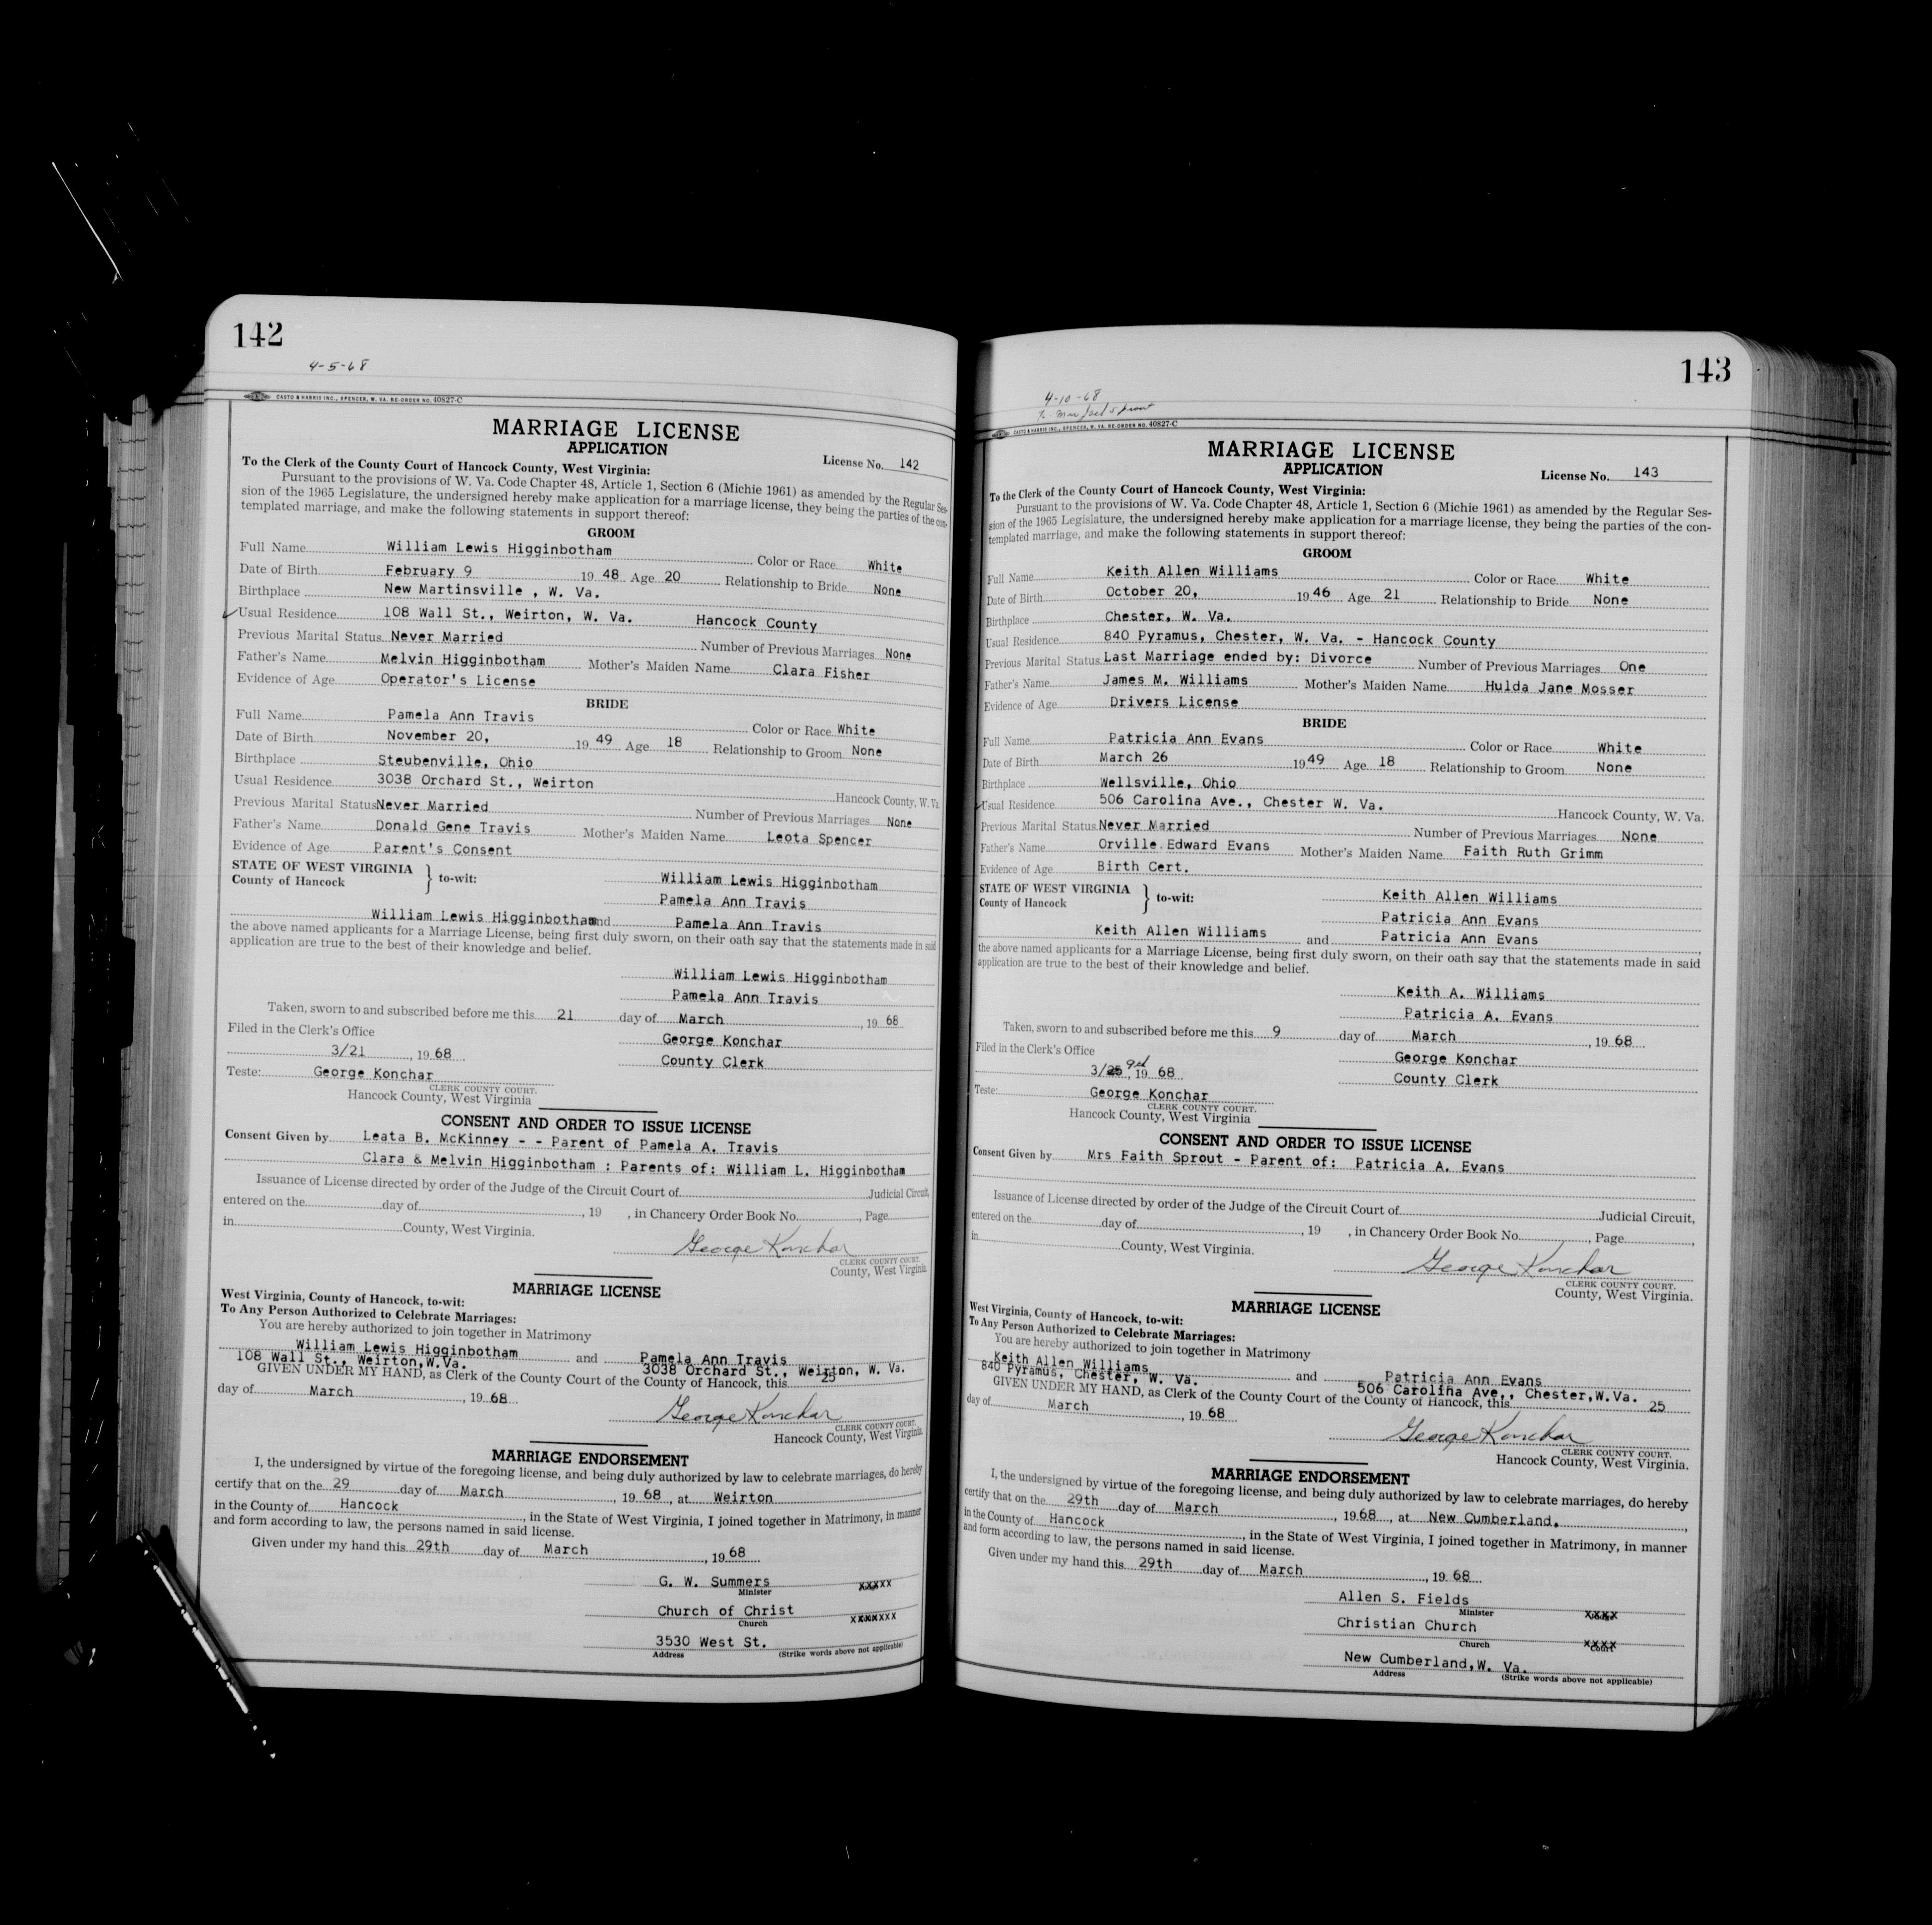 142
4-5-68
CASTO & HARRIS INC., SPENCER, W. VA. RE-ORDER NO. 40827-C
MARRIAGE LICENSE
APPLICATION
License No. 142
To the Clerk of the County Court of Hancock County, West Virginia:
Pursuant to the provisions of W. Va. Code Chapter 48, Article 1, Section 6 (Michie 1961) as amended by the Regular Ses-
sion of the 1965 Legislature, the undersigned hereby make application for a marriage license, they being the parties of the con-
templated marriage, and make the following statements in support thereof:
GROOM
Full Name William Lewis Higginbotham Color or Race White
Date of Birth February 9 19 48 Age 20 Relationship to Bride None
Birthplace New Martinsville , W. Va.
Usual Residence 108 Wall St., Weirton, W. Va. Hancock County
Previous Marital Status Never Married Number of Previous Marriages None
Father's Name Melvin Higginbotham Mother's Maiden Name Clara Fisher
Evidence of Age Operator's License
BRIDE
Full Name Pamela Ann Travis Color or Race White
Date of Birth November 20, 19 49 Age 18 Relationship to Groom None
Birthplace Steubenville, Ohio
Usual Residence 3038 Orchard St., Weirton Hancock County, W. Va.
Previous Marital Status Never Married Number of Previous Marriages None
Father's Name Donald Gene Travis Mother's Maiden Name Leota Spencer
Evidence of Age Parent's Consent
STATE OF WEST VIRGINIA
County of Hancock } to-wit:
William Lewis Higginbotham
Pamela Ann Travis
William Lewis Higginbotham and Pamela Ann Travis
the above named applicants for a Marriage License, being first duly sworn, on their oath say that the statements made in said
application are true to the best of their knowledge and belief.
William Lewis Higginbotham
Pamela Ann Travis
Taken, sworn to and subscribed before me this 21 day of March , 19 68
Filed in the Clerk's Office George Konchar
3/21 , 19 68 County Clerk
Teste: George Konchar
CLERK COUNTY COURT.
Hancock County, West Virginia
CONSENT AND ORDER TO ISSUE LICENSE
Consent Given by Leata B. McKinney - - Parent of Pamela A. Travis
Clara & Melvin Higginbotham : Parents of: William L. Higginbotham
Issuance of License directed by order of the Judge of the Circuit Court of Judicial Circuit,
entered on the day of , 19 , in Chancery Order Book No. , Page
in County, West Virginia.
George Konchar
CLERK COUNTY COURT.
County, West Virginia
MARRIAGE LICENSE
West Virginia, County of Hancock, to-wit:
To Any Person Authorized to Celebrate Marriages:
You are hereby authorized to join together in Matrimony
William Lewis Higginbotham and Pamela Ann Travis
108 Wall St., Weirton,W.Va. 3038 Orchard St., Weirton, W. Va.
GIVEN UNDER MY HAND, as Clerk of the County Court of the County of Hancock, this 25
day of March , 19 68
George Konchar
CLERK COUNTY COURT.
Hancock County, West Virginia
MARRIAGE ENDORSEMENT
I, the undersigned by virtue of the foregoing license, and being duly authorized by law to celebrate marriages, do hereby
certify that on the 29 day of March , 19 68 , at Weirton
in the County of Hancock , in the State of West Virginia, I joined together in Matrimony, in manner
and form according to law, the persons named in said license.
Given under my hand this 29th day of March , 19 68
G. W. Summers
Minister xxxxx
Church of Christ
Church xxxxxxx
3530 West St.
Address (Strike words above not applicable)
143
4-10-68
CASTO & HARRIS INC., SPENCER, W. VA. RE-ORDER NO. 40827-C
MARRIAGE LICENSE
APPLICATION
License No. 143
To the Clerk of the County Court of Hancock County, West Virginia:
Pursuant to the provisions of W. Va. Code Chapter 48, Article 1, Section 6 (Michie 1961) as amended by the Regular Ses-
sion of the 1965 Legislature, the undersigned hereby make application for a marriage license, they being the parties of the con-
templated marriage, and make the following statements in support thereof:
GROOM
Full Name Keith Allen Williams Color or Race White
Date of Birth October 20, 19 46 Age 21 Relationship to Bride None
Birthplace Chester, W. Va.
Usual Residence 840 Pyramus, Chester, W. Va. - Hancock County
Previous Marital Status Last Marriage ended by: Divorce Number of Previous Marriages One
Father's Name James M. Williams Mother's Maiden Name Hulda Jane Mosser
Evidence of Age Drivers License
BRIDE
Full Name Patricia Ann Evans Color or Race White
Date of Birth March 26 19 49 Age 18 Relationship to Groom None
Birthplace Wellsville, Ohio
Usual Residence 506 Carolina Ave., Chester W. Va. Hancock County, W. Va.
Previous Marital Status Never Married Number of Previous Marriages None
Father's Name Orville Edward Evans Mother's Maiden Name Faith Ruth Grimm
Evidence of Age Birth Cert.
STATE OF WEST VIRGINIA
County of Hancock } to-wit:
Keith Allen Williams
Patricia Ann Evans
Keith Allen Williams and Patricia Ann Evans
the above named applicants for a Marriage License, being first duly sworn, on their oath say that the statements made in said
application are true to the best of their knowledge and belief.
Keith A. Williams
Patricia A. Evans
Taken, sworn to and subscribed before me this 9 day of March , 19 68
Filed in the Clerk's Office George Konchar
3/ , 19 68 County Clerk
Teste: George Konchar
CLERK COUNTY COURT.
Hancock County, West Virginia
CONSENT AND ORDER TO ISSUE LICENSE
Consent Given by Mrs Faith Sprout - Parent of: Patricia A. Evans
Issuance of License directed by order of the Judge of the Circuit Court of Judicial Circuit,
entered on the day of , 19 , in Chancery Order Book No. , Page ,
in County, West Virginia.
George Konchar
CLERK COUNTY COURT.
County, West Virginia.
MARRIAGE LICENSE
West Virginia, County of Hancock, to-wit:
To Any Person Authorized to Celebrate Marriages:
You are hereby authorized to join together in Matrimony
Keith Allen Williams and Patricia Ann Evans
840 Pyramus, Chester, W. Va. 506 Carolina Ave., Chester,W.Va.
GIVEN UNDER MY HAND, as Clerk of the County Court of the County of Hancock, this 25
day of March , 19 68
George Konchar
CLERK COUNTY COURT.
Hancock County, West Virginia.
MARRIAGE ENDORSEMENT
I, the undersigned by virtue of the foregoing license, and being duly authorized by law to celebrate marriages, do hereby
certify that on the 29th day of March , 19 68 , at New Cumberland.
in the County of Hancock , in the State of West Virginia, I joined together in Matrimony, in manner
and form according to law, the persons named in said license.
Given under my hand this 29th day of March , 19 68
Allen S. Fields
Minister xxxx
Christian Church
Church xxxx
New Cumberland,W. Va.
Address (Strike words above not applicable)